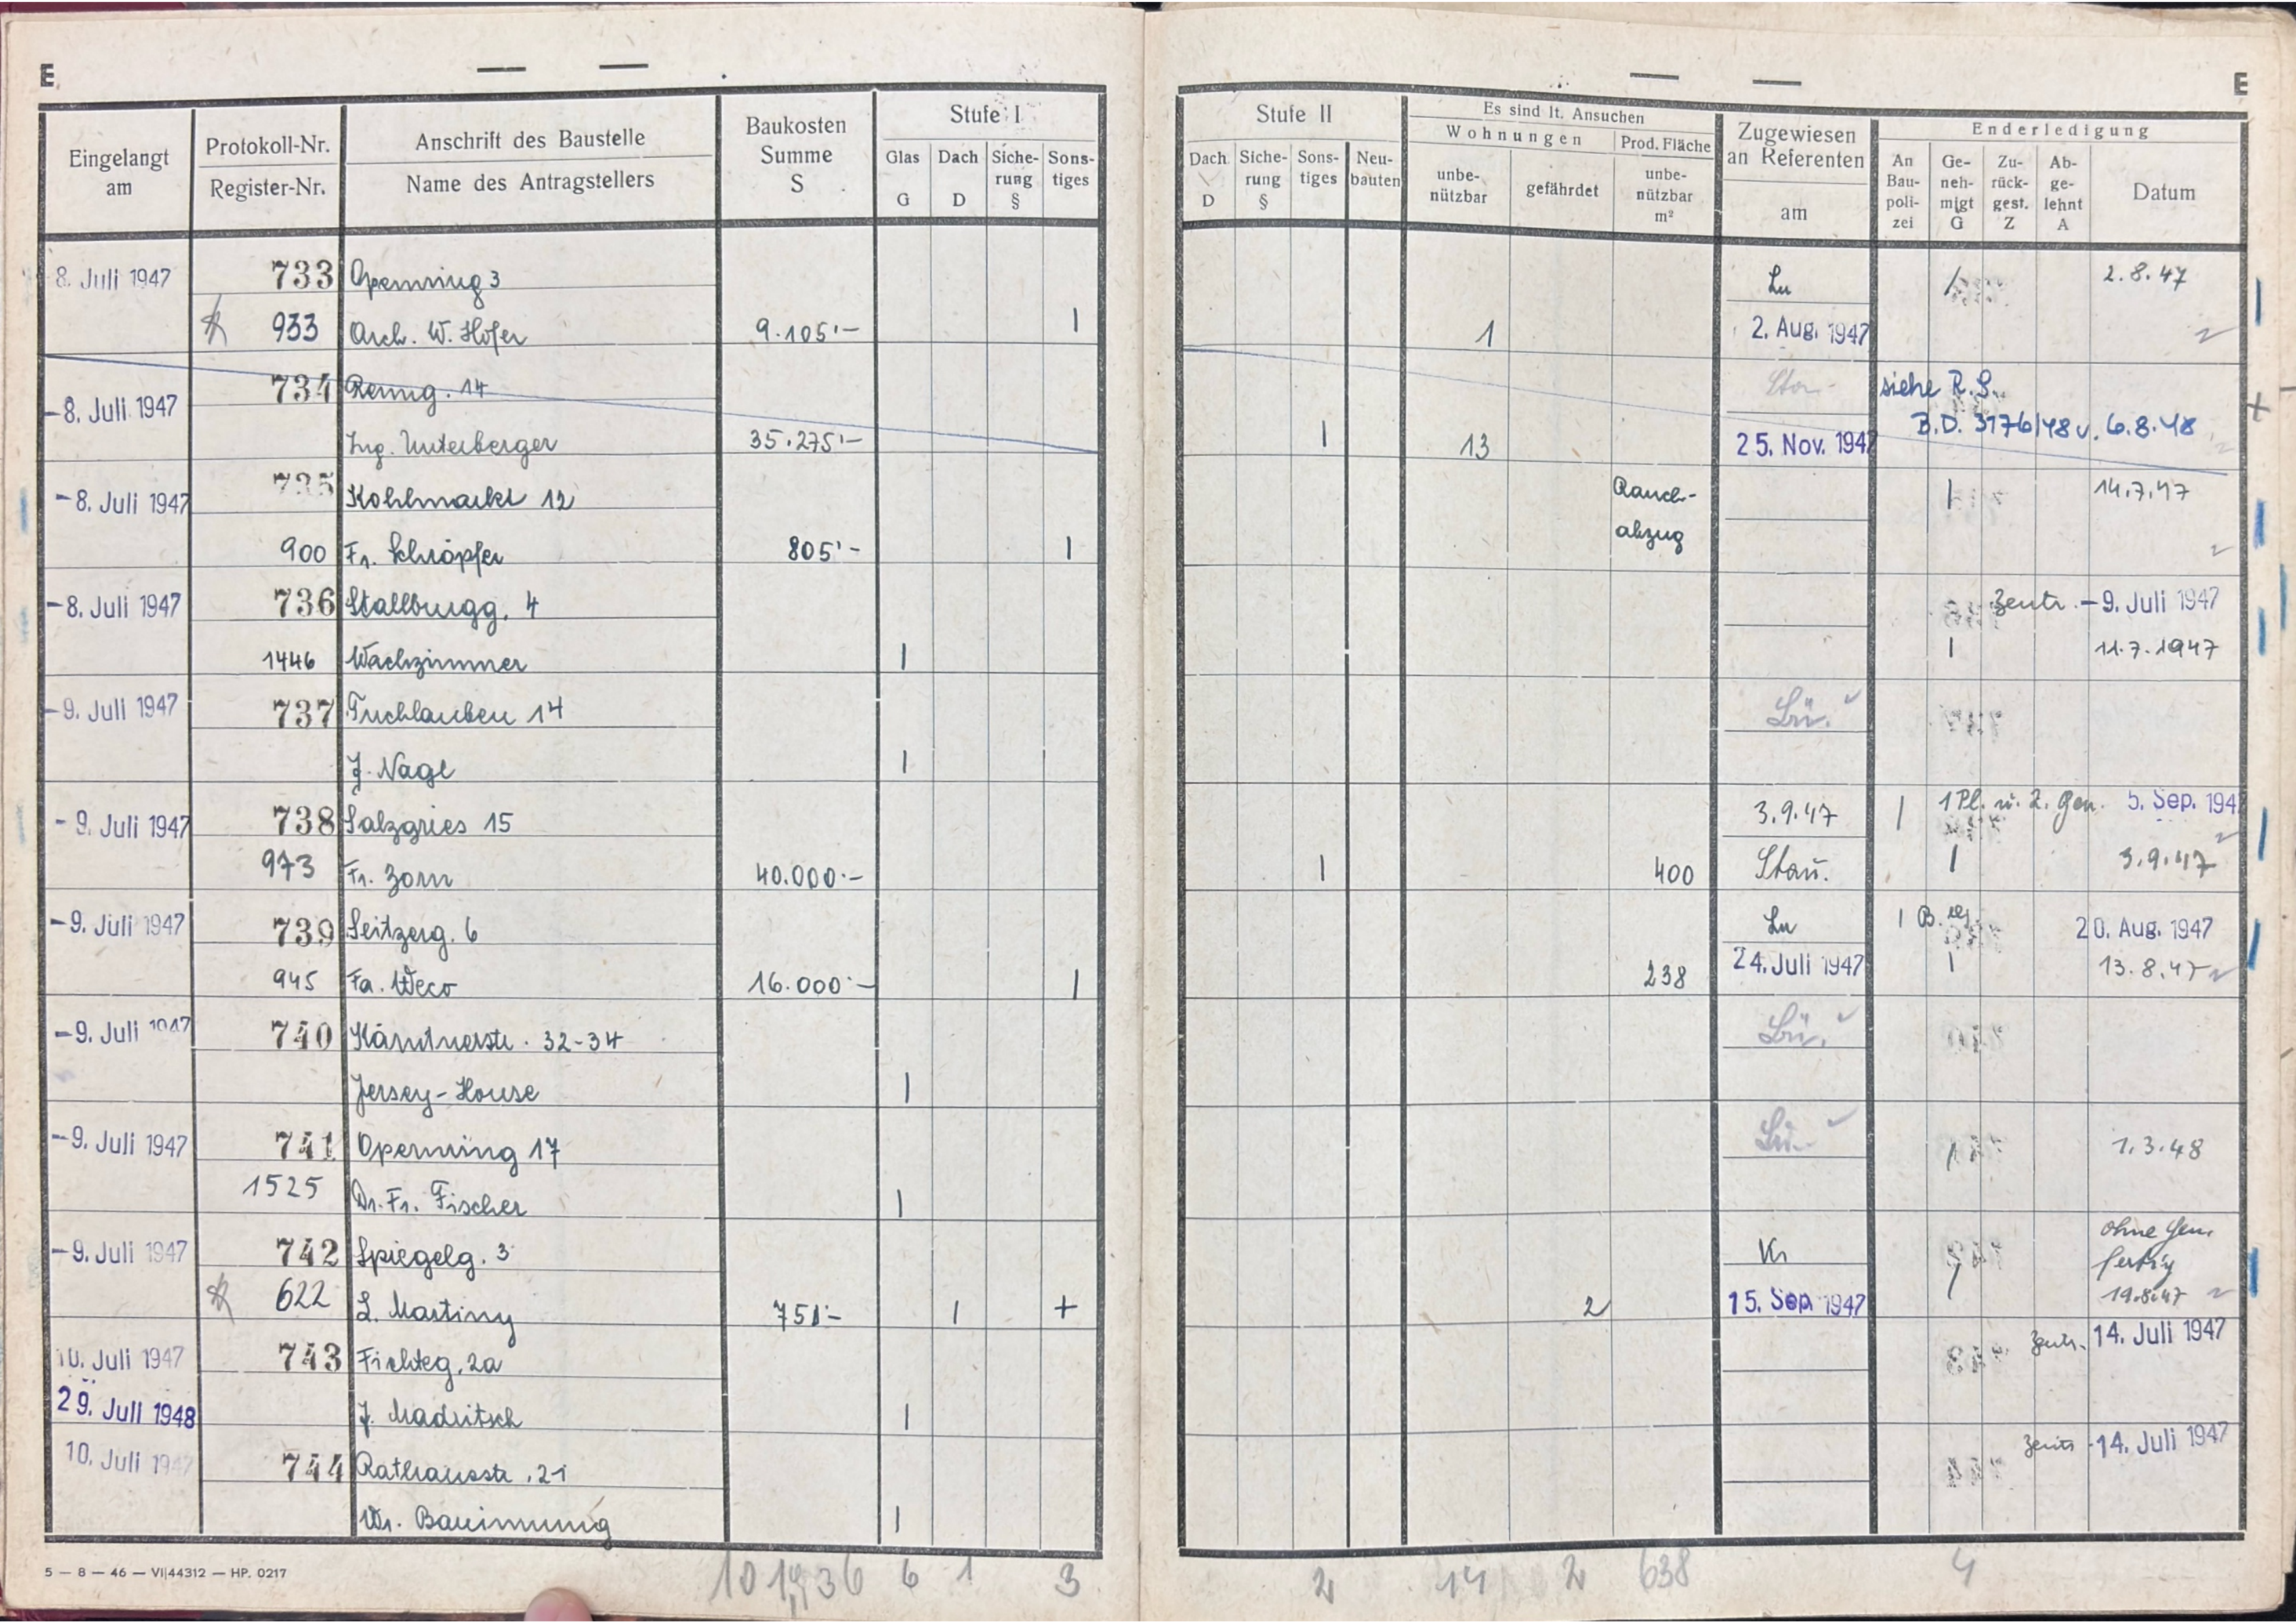 E
E
Eingelangt am
Protokoll-Nr.
Register-Nr.
Anschrift des Baustelle
Name des Antragstellers
Baukosten Summe S
Stufe I
Glas G
Dach D
Siche-rung §
Sons-tiges
Stufe II
Dach D
Siche-rung §
Sons-tiges
Neu-bauten
Es sind lt. Ansuchen
Wohnungen
unbe-nützbar
gefährdet
Prod. Fläche
unbe-nützbar m²
Zugewiesen an Referenten
am
Enderledigung
An Bau-poli-zei
Ge-neh-migt G
Zu-rück-gest. Z
Ab-ge-lehnt A
Datum
8. Juli 1947 733 Opernring 3 Lu / 2.8.47
933 Arch. W. Hofer 9.105'– | 1 2. Aug. 1947
–8. Juli 1947 734 Renng. 14 siehe R.S.
Ing. Unterberger 35.275'– | 13 25. Nov. 1947 B.D. 3176/48 v. 6.8.48
–8. Juli 1947 735 Kohlmarkt 12 Rauch- | 14.7.47
900 Fr. Schröpfer 805'– | abzug
–8. Juli 1947 736 Stallburgg. 4 Zentr. –9. Juli 1947
1446 Wachzimmer | | 11.7.1947
–9. Juli 1947 737 Tuchlauben 14 Lü. ✓
J. Nagl |
–9. Juli 1947 738 Salzgries 15 3.9.47 | 1 Pl. u. 2. Gen. 5. Sep. 194
973 Fr. Zorn 40.000.– | 400 Stau. | 3.9.47
–9. Juli 1947 739 Seitzerg. 6 Lu | B. 20. Aug. 1947
945 Fa. Weco 16.000.– | 238 24. Juli 1947 | 13.8.47
–9. Juli 1947 740 Kärntnerstr. 32-34 Lü. ✓
Jersey-House |
–9. Juli 1947 741 Opernring 17 Lü. ✓ | 1.3.48
1525 Dr. Fr. Fischer |
–9. Juli 1947 742 Spiegelg. 3 Kr ohne Gen. fertig
622 L. Martiny 751.– | + 2 15. Sep. 1947 / 19.8.47
10. Juli 1947 743 Fichteg. 2a Zentr. 14. Juli 1947
29. Juli 1948 J. Madritsch |
10. Juli 1947 744 Rathausstr. 21 Zentr. 14. Juli 1947
Wr. Bauinnung |
6 1 3 2 14 2 638 4
5 — 8 — 46 — VI|44312 — HP. 0217